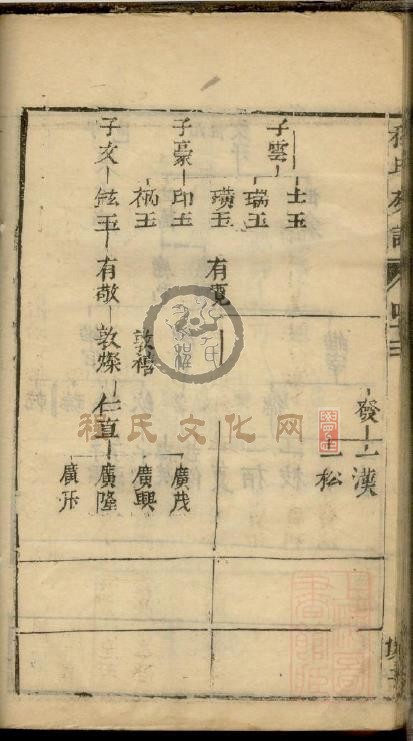 程氏
發 一漢
一松
子雲 士玉
瑞玉
璜玉 有寬
子豪 印玉
柄玉
子文 鉉玉 有敬 敦燦 仁直 廣隆
敦禧
廣茂
廣興
廣升
程氏文化网